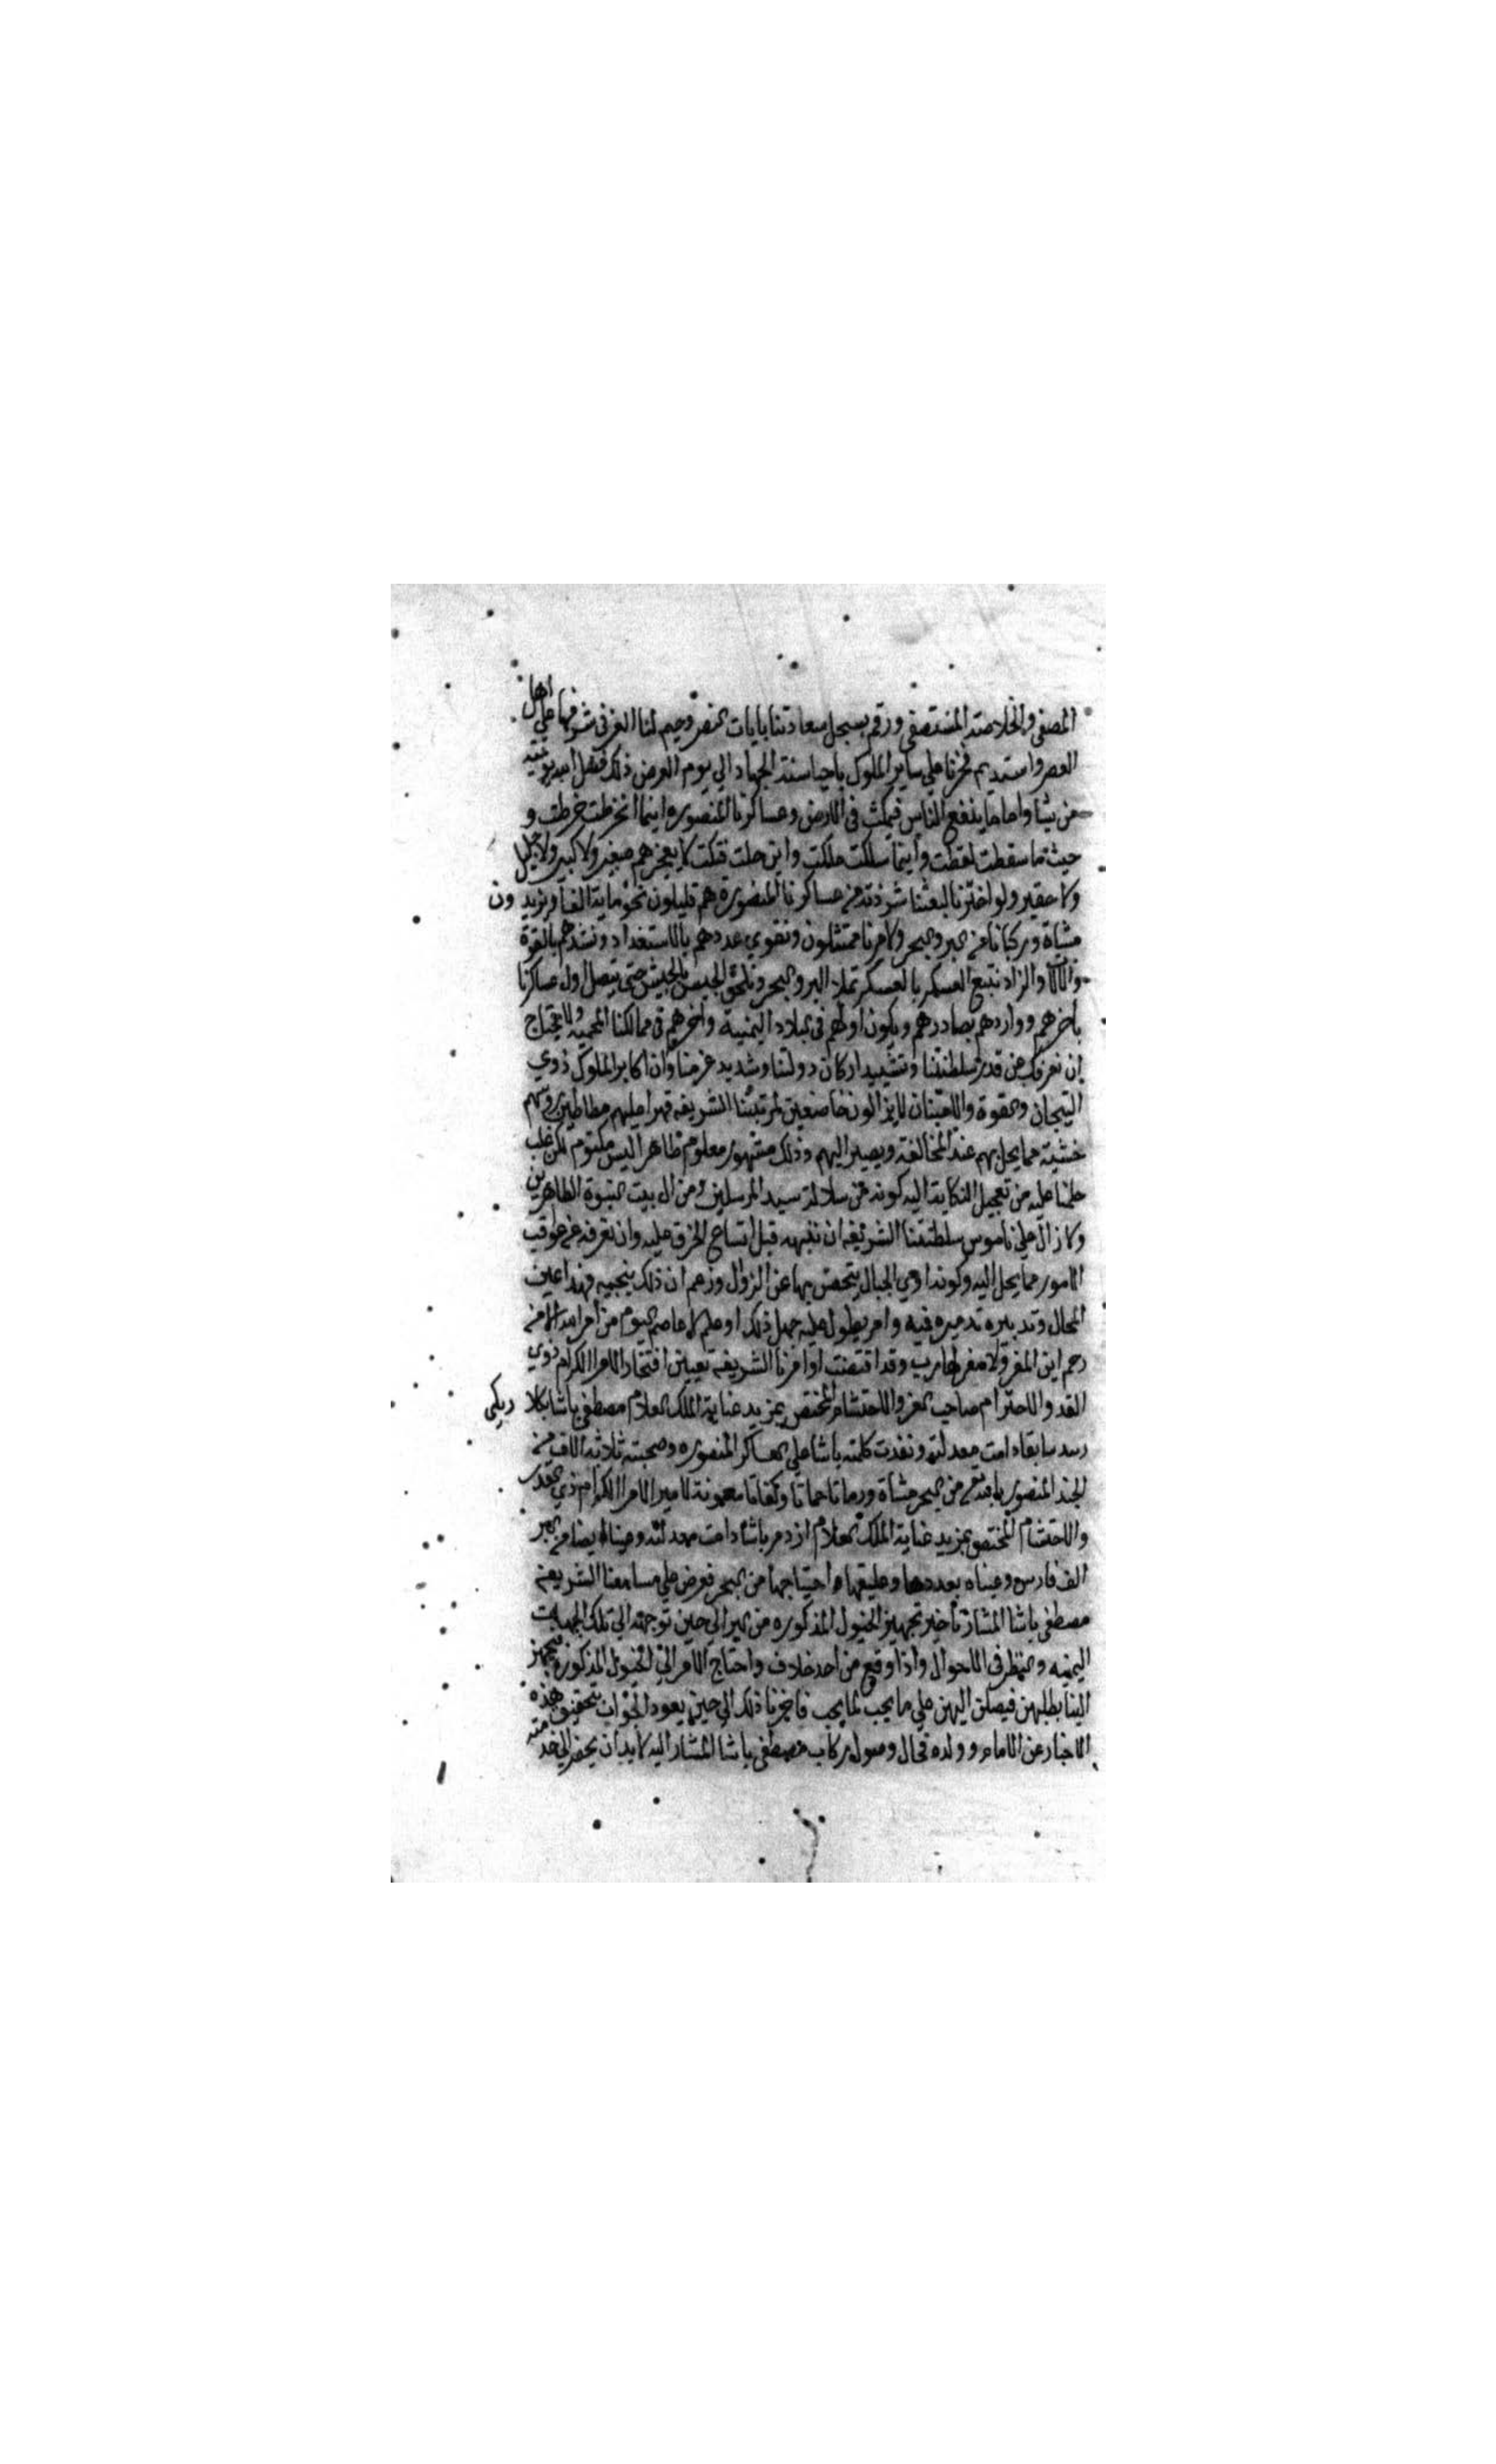 المصفى والخلاصة المستصفى ورقم بسجل سعادتنا بايات النصر وحيم لنا العز في شرفها على اهل
العصر واستديم فخرنا على ساير الملوك باحيا سنة الجهاد الي يوم العرض ذلك فضل الله يوتيه
من يشا واما ما ينفع الناس فيمكث في الارض وعساكرنا المنصوره اينما انخرطت خرطت و
حيث ما سقطت لقطت واينما سلكت ملكت واين حلت فتكت لا يعجزهم صغير ولا كبير ولا جليل
ولا حقير ولو اخترنا لبعثنا شرذمة من عساكرنا المنصوره هم قليلون نحو ماية الف او يزيدون
مشاة وركبانا من البر والبحر ولامرنا ممتثلون ونقوي عددهم بالاستعداد ونشدهم بالقوة
والالات والزاد نتبع العسكر بالعسكر تملا البر والبحر ونلحق الجيش بالجيش حتى يتصل اول عساكرنا
باخرهم وواردهم بصادرهم ويكون اولهم في البلاد اليمنية واخرهم في ممالكنا المحميه ولا نحتاج
ان نعرفك عن قدرة سلطنتنا وتشييد اركان دولتنا وشديد عزمنا وان اكابر الملوك ذوي
التيجان والقوة والامتنان لا يزالون خاضعين لمرتبتنا الشريفه قهرا عليهم مطاطين روسهم
خشية مما يحل بهم عند المخالفة ويصير اليهم وذلك مشهور معلوم ظاهرا ليس مكتوم لكن غلب
حلمنا عليه من تعجيل النكاية اليه كونه من سلالة سيد المرسلين ومن ال بيت النبوة الطاهرين
ولازال على ناموس سلطنتنا الشريفه ان ننبهه قبل اتساع الخرق عليه وان نعرفه عن عواقب
الامور مما يحل اليه وكونه اوي الجبال يتحصن بها عن الزوال وزعم ان ذلك ينجيه فهذا عين
المحال وتدبيره تدميره فيه وامر يطول عليه جهل ذلك او علم لا عاصم اليوم من امر الله الا من
رحم اين المفر ولا مفر لهارب وقد اقتضت اوامرنا الشريفه تعيين افتخار الامرا الكرام ذوي
القدر والاحترام صاحب العز والاحتشام المختص بمزيد عناية الملك العلام مصطفى باشا بكلاربكى
سابقا دامت معدلته ونفذت كلمته باشا على العساكر المنصوره وصحبته ثلاثة الاف من
الجند المنصور من البحر مشاة ورماتا حماتا وكفاتا معونة لامير الامرا الكرام ذي القدر
والاحتشام المختص بمزيد عناية الملك العلام ازدمر باشا دامت معدلته وعينا ايضا من البر
الف فارس وعيناه بعددها وعليقها واحتياجها من البحر فعرض على مسامعنا الشريفه
مصطفى باشا المشار تاخير تجهيز الخيول المذكوره من البر الي حين توجهه الي تلك الجهات
اليمنيه والنظر في الاحوال واذا وقع من احد خلاف واحتاج الامر الي الخيول المذكورة يجهز
الينا بطلبهن فيصلن اليهن على ما يجب كما يجب فاخرنا ذلك الي حين يعود الجواب بتحقيق هذه
الاخبار عن الامام وولده فحال وصول ركاب مصطفى باشا المشار اليه لابد ان يحضر الي خدمته